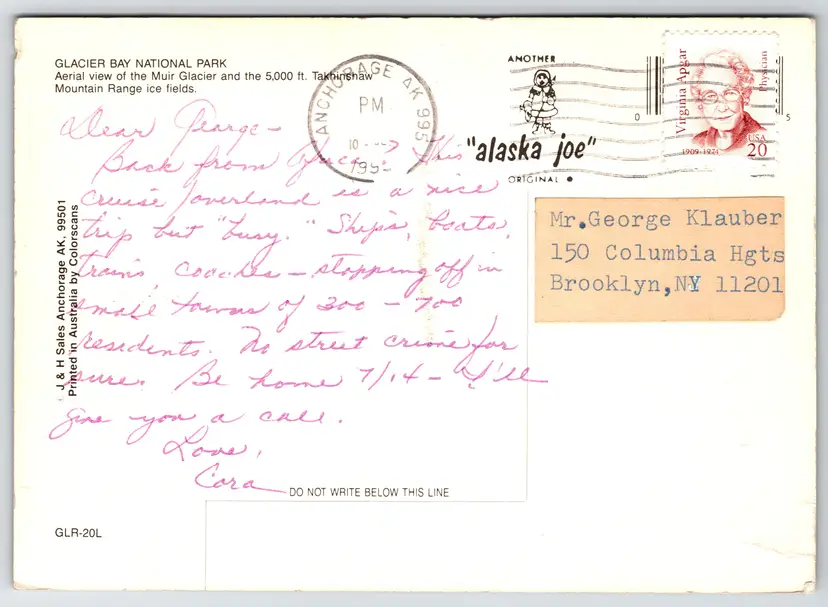 GLACIER BAY NATIONAL PARK
Aerial view of the Muir Glacier and the 5,000 ft. Takhinshaw
Mountain Range ice fields.
ANCHORAGE AK 995
PM
10
ANOTHER
"alaska joe"
ORIGINAL
Virginia Apgar
Physician
1909-1974
USA
20
0
5
Dear George -
Back from Africa. This
cruise/overland is a nice
trip but "busy." Ships, boats,
trains, coaches - stopping off in
small towns of 300 - 700
residents. No street crime for
sure. Be home 7/14 - I'll
give you a call.
Love,
Cora
Mr.George Klauber
150 Columbia Hgts
Brooklyn,NY 11201
J & H Sales Anchorage AK, 99501
Printed in Australia by Colorscans
DO NOT WRITE BELOW THIS LINE
GLR-20L